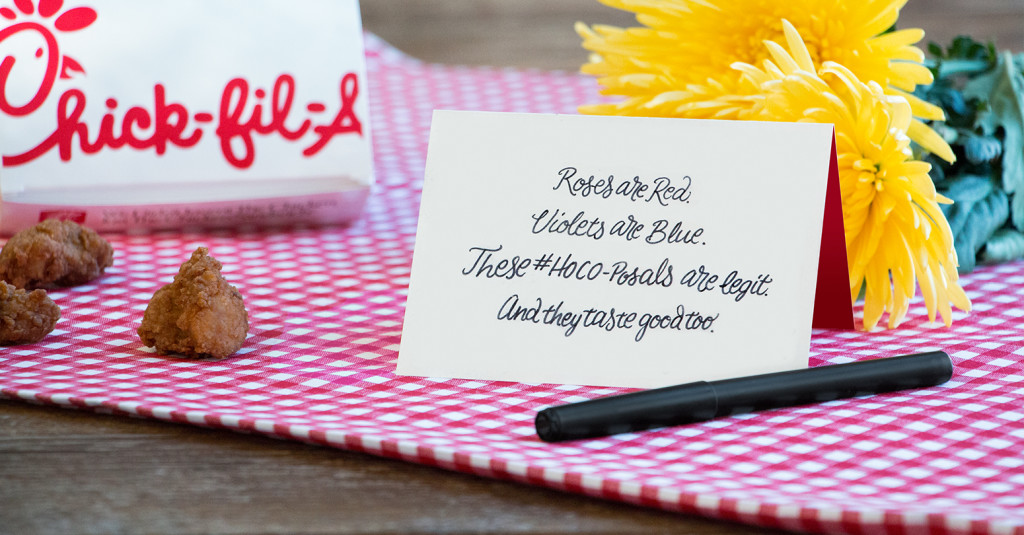 Chick-fil-A
Roses are Red.
Violets are Blue.
These #HOCO-Posals are legit.
And they taste good too.